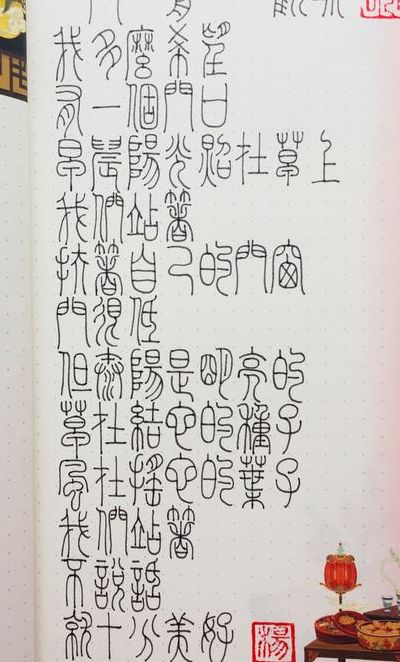 我多麼希望
有一個門口
早晨陽光照在草上
我們站著
扶著自己的門窗
門很低
但太陽是明亮的
草在結它的種子
風在搖它的葉子
我們站著
不說話
就十分美好
湯